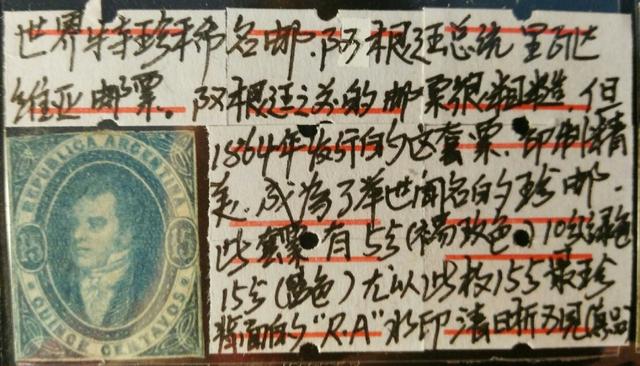 世界特珍稀名邮.阿根廷总统里瓦达
维亚邮票.阿根廷之前的邮票很粗糙.但
1864年发行的这套票.印制精
美.成为了举世闻名的珍邮.
此套票有5分(玫色)10分绿色
15分(蓝色)尤以此枚15分最珍
背面的"R.A"水印清晰可见(真品)
REPUBLICA ARGENTINA
15 15
QUINCE CENTAVOS